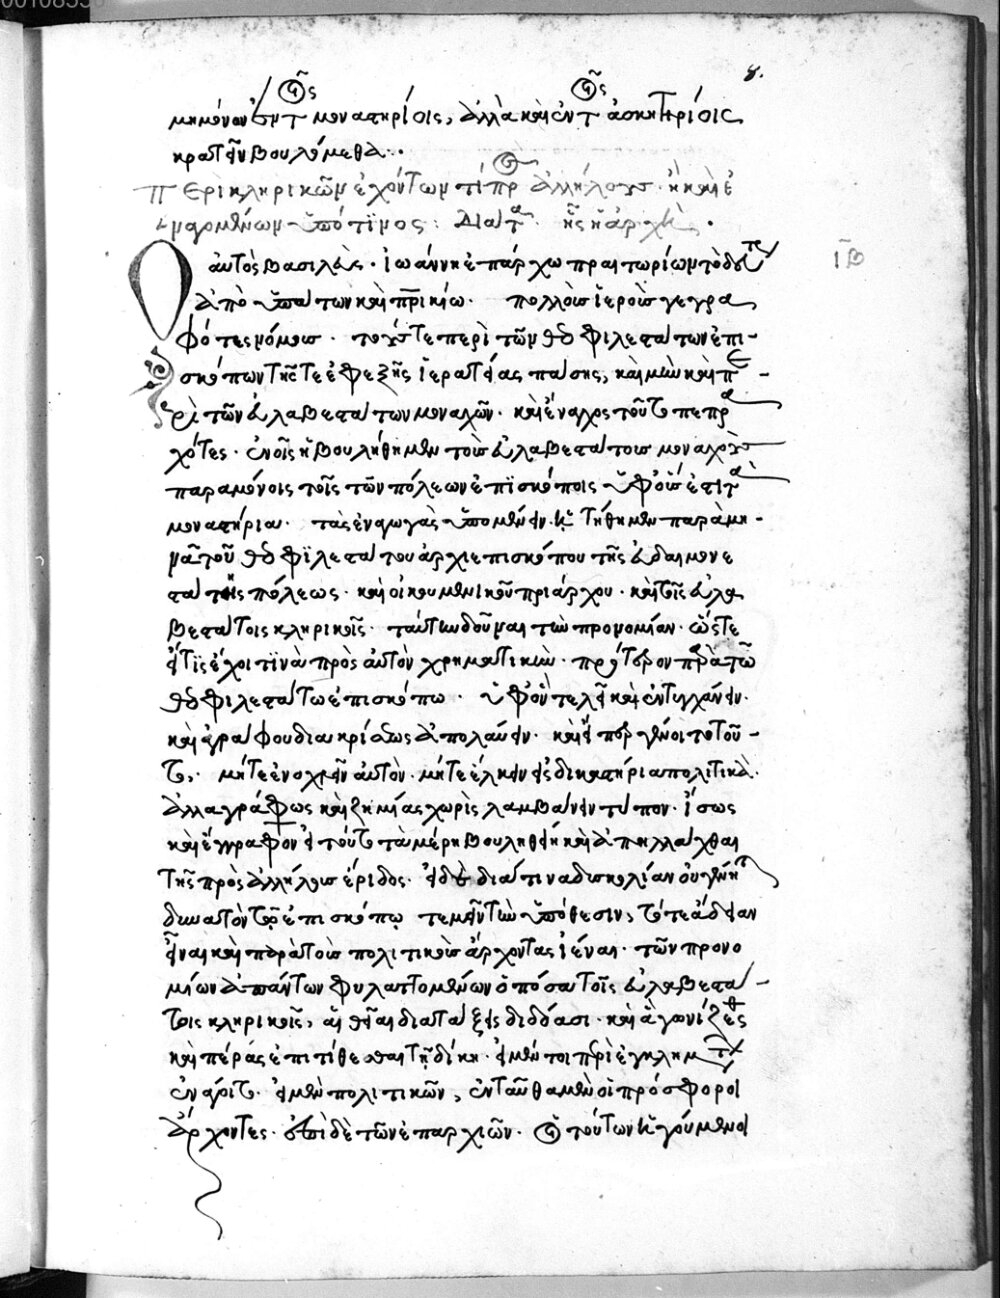 8.
μημένον ἐν τοῖς μοναστηρίοις, ἀλλὰ καὶ ἐν τοῖς ἀσκητηρίοις
κρατεῖν βουλόμεθα.
Περὶ κληρικῶν ἐχόντων τι πρὸς ἀλλήλους ἢ καὶ ἐ
ὑπότιτλος: Διατ ἧς ἡ ἀρχὴ.
ὁ αὐτὸς βασιλεὺς. Ἰωάννῃ ἐπάρχω πραιτωρίων τὸ δεύτε
ἀπὸ ὑπάτων καὶ πατρικίω. πολλοῖς ἱεροῖς γεγρα
φότες νόμοις. τούς τε περὶ τῶν θεοφιλεστάτων ἐπι-
σκόπων τῆς τε ἐφεξῆς ἱερατείας πάσης, καὶ μὴν καὶ πε-
ρὶ τῶν εὐλαβεστάτων μοναχῶν. καὶ ἔναγχος τοῦτο πεπρα
χότες. ἐν οἷς ἠβουλήθημεν τοὺς εὐλαβεστάτους μοναχοὺς
παραμένοις τοῖς τῶν πόλεων ἐπισκόποις ὑφ' οἷς ἐστι τὰ
μοναστήρια. τὰς ἐναγωγὰς ὑπομένειν. ᾐτήθημεν παρὰ μη-
νᾶ τοῦ θεοφιλεστάτου ἀρχιεπισκόπου τῆς εὐδαιμονε
στάτης πόλεως. καὶ οἰκουμενικοῦ πατριάρχου. καὶ τοῖς εὐλα
βεστάτοις κληρικοῖς. ταύτην δοῦναι τὴν προνομίαν. ὥστε
εἴ τις ἔχοι τινὰ πρὸς αὐτὸν χρηματικὴν. πρότερον παρὰ τῶ
θεοφιλεστάτω ἐπισκόπω. ὑφ' ὃν τελεῖ καὶ ἐντυγχάνειν.
καὶ ἀγράφου διακρίσεως ἀπολαύειν. καὶ εἰ παραγένοιτο τοῦ-
το. μήτε ἐνοχλεῖν αὐτὸν. μήτε ἕλκειν εἰς δικαστήρια πολιτικὰ.
ἀλλ' ἀγράφως καὶ ζημίας χωρὶς λαμβάνειν τύπον. ἴσως
καὶ ἔγγραφον εἰ τοῦτο τὰ μέρη βουληθείη καὶ ἀπηλλάχθαι
τῆς πρὸς ἀλλήλους ἔριδος. εἰ δὲ διά τινα δυσκολίαν οὐ γένητ
δυνατὸν τῷ ἐπισκόπῳ τεμεῖν τὴν ὑπόθεσιν, τότε ἄδειαν
εἶναι καὶ παρὰ τοὺς πολιτικοὺς ἄρχοντας ἰέναι. τῶν προνο
μίων ἁπάντων φυλαττομένων ὁπόσα τοῖς εὐλαβεστά-
τοις κληρικοῖς, αἱ θεῖαι διατάξεις διδόασι. καὶ ἀγωνίζεσθ
καὶ πέρας ἐπιτίθεσθαι τῇ δίκῃ. εἰ μέν τοι περὶ ἐγκλημάτ
εἰ μὲν πολιτικῶν, ἐνταῦθα μὲν οἱ πρόσφοροι
ἄρχοντες. ἐπὶ δὲ τῶν ἐπαρχιῶν. οἱ τούτων ἡγούμενοι
ΙΒ